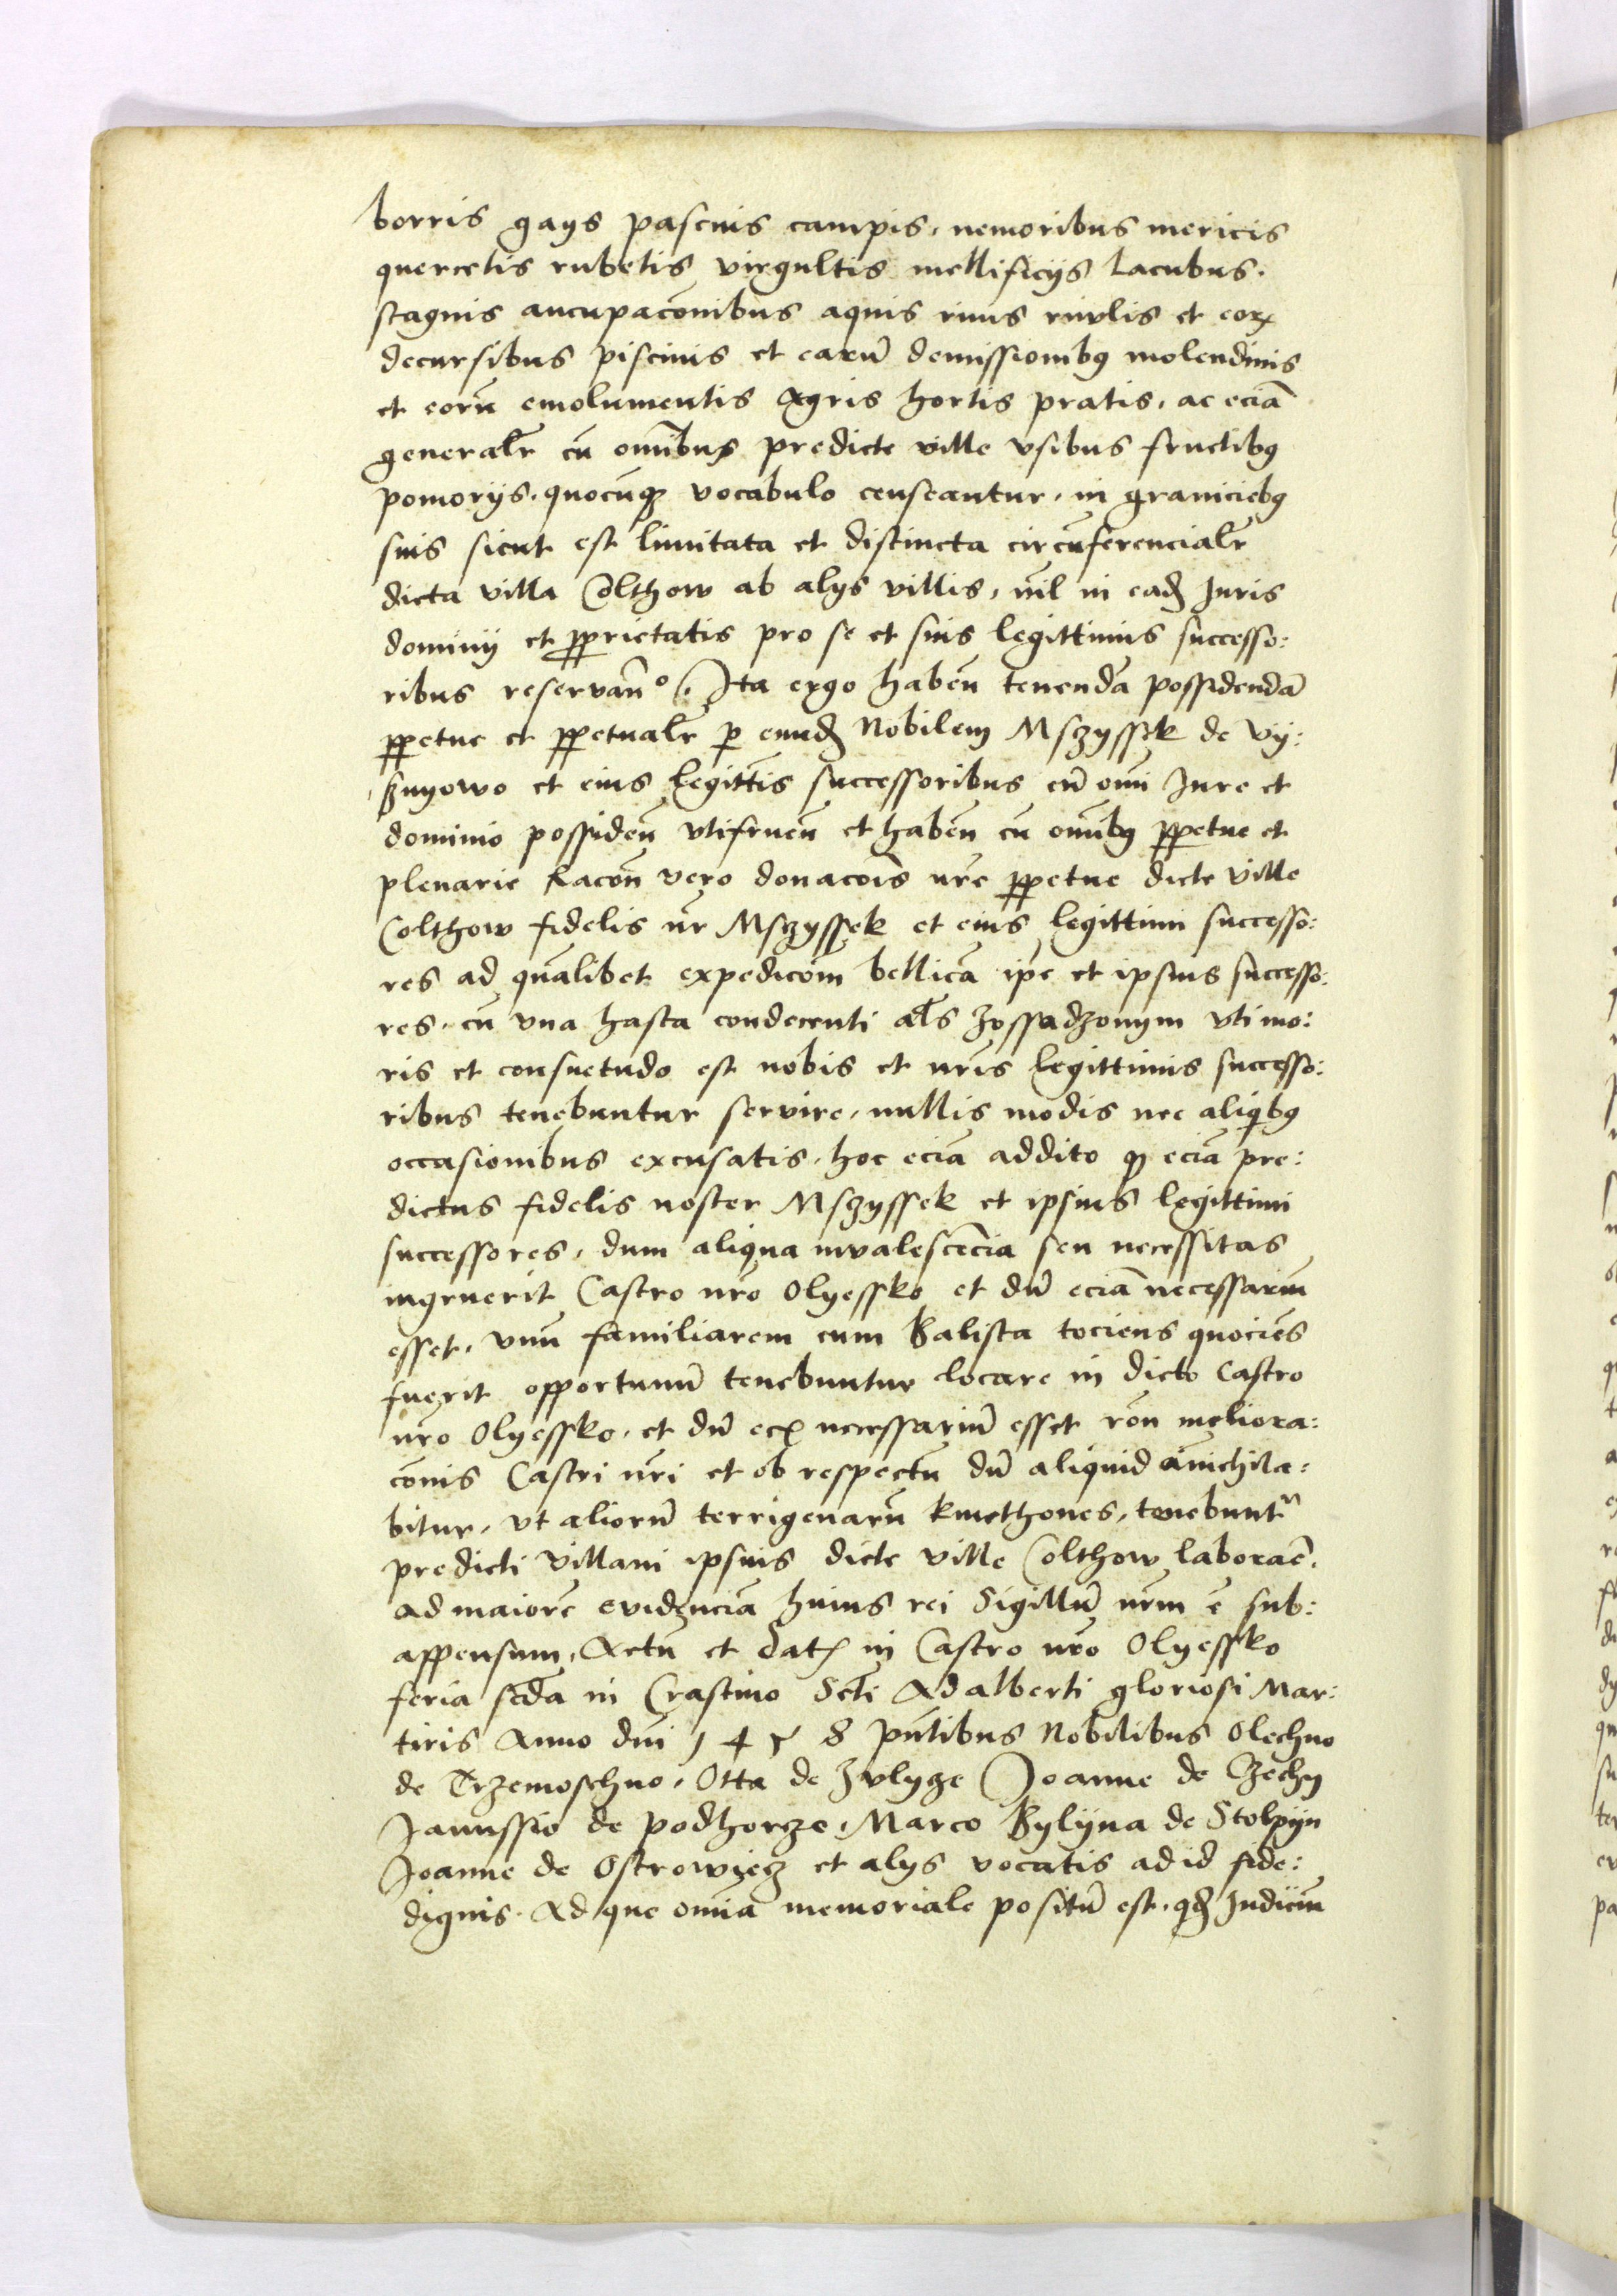 borris gays pascuis campis, nemoribus mericis
quercetis rubetis virgultis mellificijs Lacubus.
stagnis aucupacõnibus aquis riuis riuulis et eoꝝ
decursibus piscinis et earũ demissionibꝫ molendinis
et eorũ emolumentis Agris hortis pratis, ac eciã
generalr̃ cũ om̃ibus predicte ville vsibus fructibꝫ
pomorijs. quocũqꝫ vocabulo censeantur, in graniciebꝫ
suis sicut est limitata et distincta circũferencialr̃
dicta villa Colthow ab alys villis, nil in eadẽ Juris
dominij et ꝓprietatis pro se et suis legittimis successo:
ribus reservan̄°. Ita ergo haben̄ tenendã possidendã
ꝑpetue et ꝑpetualr̃ ꝑ eundẽ Nobilem Msczyssek de Vÿ:
sznyowo et eius Legittĩs successoribus cũ om̃i Jure et
dominio possiden̄ vtifruen̄ et haben̄ cũ om̃ibꝫ ꝑpetue et
plenarie Racõn vero donacõis nr̃e ꝑpetue dicte ville
Colthow fidelis nr̃ Msczyssek et eius legittimi successo:
res ad quãlibet expedicõm bellicã ip̃e et ipsius successo:
res, cũ vna hasta condecenti al̃s Zossadzonym vti mo:
ris et consuetudo est nobis et nr̃is legittimis successo:
ribus tenebuntur servire, nullis modis nec aliqͥbꝫ
occasionibus excusatis, hoc eciã addito qꝫ eciã pre:
dictus fidelis noster Msczyssek et ipsius legittimi
successores, dum aliqua invalescẽcia seu necessitas
ingruerit Castro nr̃o Olyessko et dũ eciã necessariũ
esset, vnũ familiarem cum Balista tociens quociẽs
fuerit opportunũ tenebuntur locare in dicto Castro
nr̃o Olyessko, et dũ ecꝫ necessariũ esset rõn meliora:
cõnis Castri nr̃i et ob respectũ dũ aliquid ãnichila:
bitur, vt aliorũ terrigenarũ kmethones, tenebuntʳ
predicti villani ipsius dicte ville Colthow laborar̃e.
ad maiorẽ evidenciã huius rei Sigillũ nr̃m ẽ sub:
appensum, Actũ et Datꝫ in Castro nr̃o Olyessko
feria scdã in Crastino Scti Adalberti gloriosi Mar:
tiris Anno dñi 1458 pñtibus Nobilibus Olechno
de Trzemoschno, Otta de Zulycze Joanne de Czechy
Janussio de podhorze, Marco Bylÿna de Stolpÿn
Joanne de Ostrowyecz et alys vocatis ad id fide:
dignis. Ad que om̃ia memoriale positũ est, qđ Judiciũ